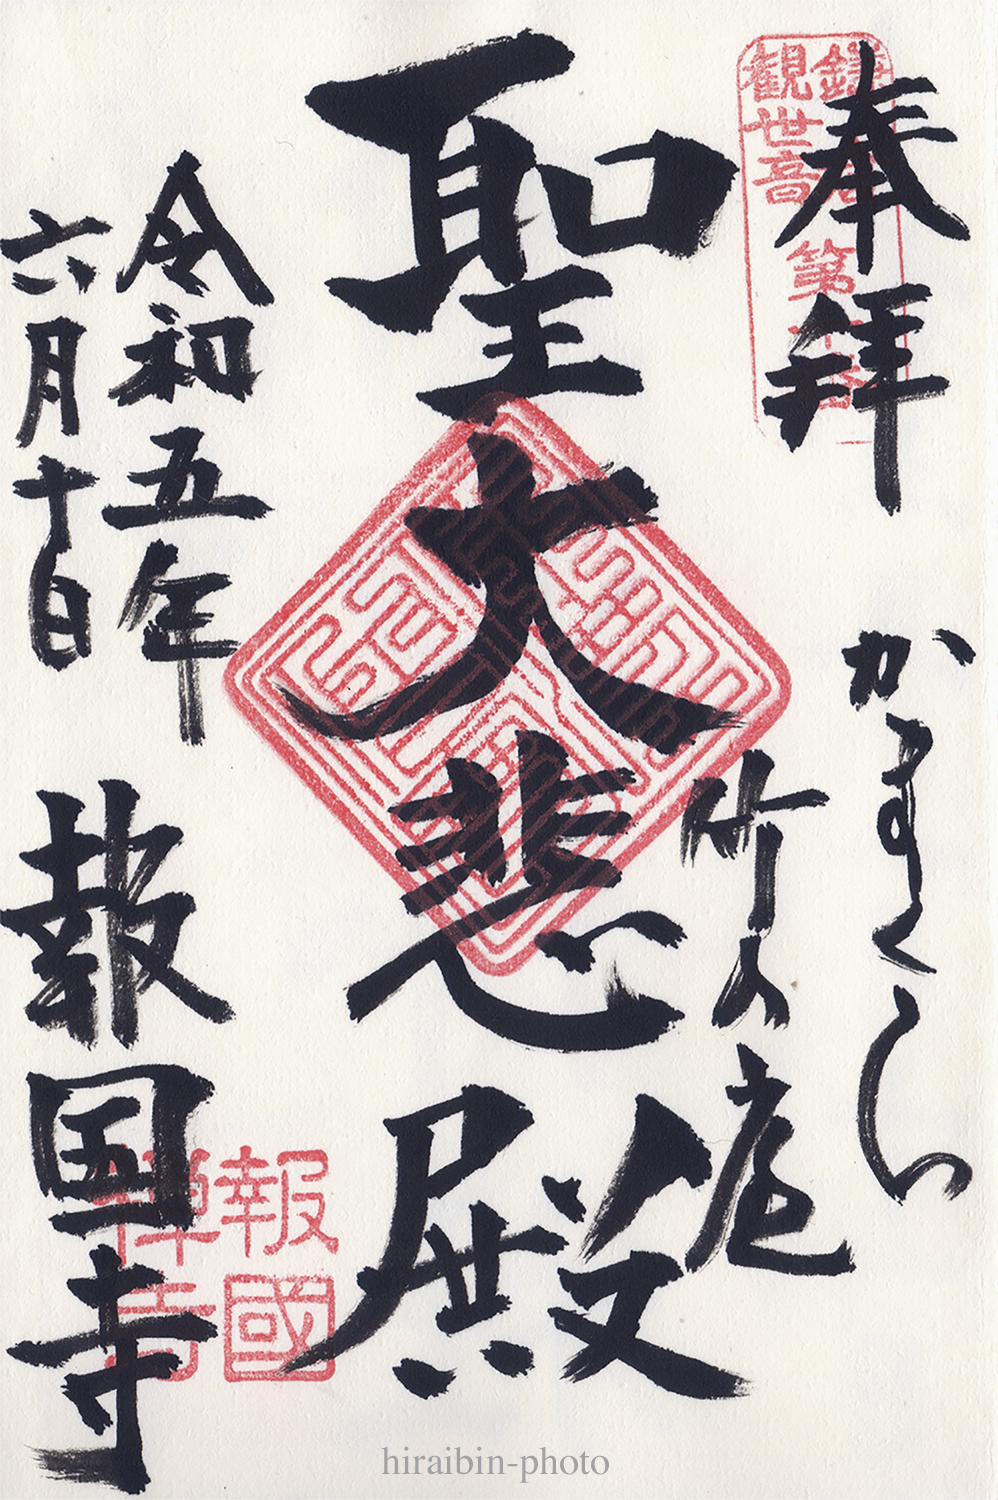 奉拝
かまくら
竹の庭
聖大悲殿
令和五年
六月十日
報国寺
観世音
第
報國
禅寺
hiraibin-photo